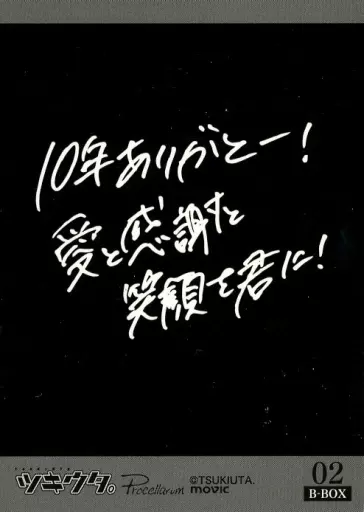 10年ありがとー!
愛と感謝と
笑顔を君に!
ツキウタ。
Procellarum
©TSUKIUTA.
movic
02
B-BOX